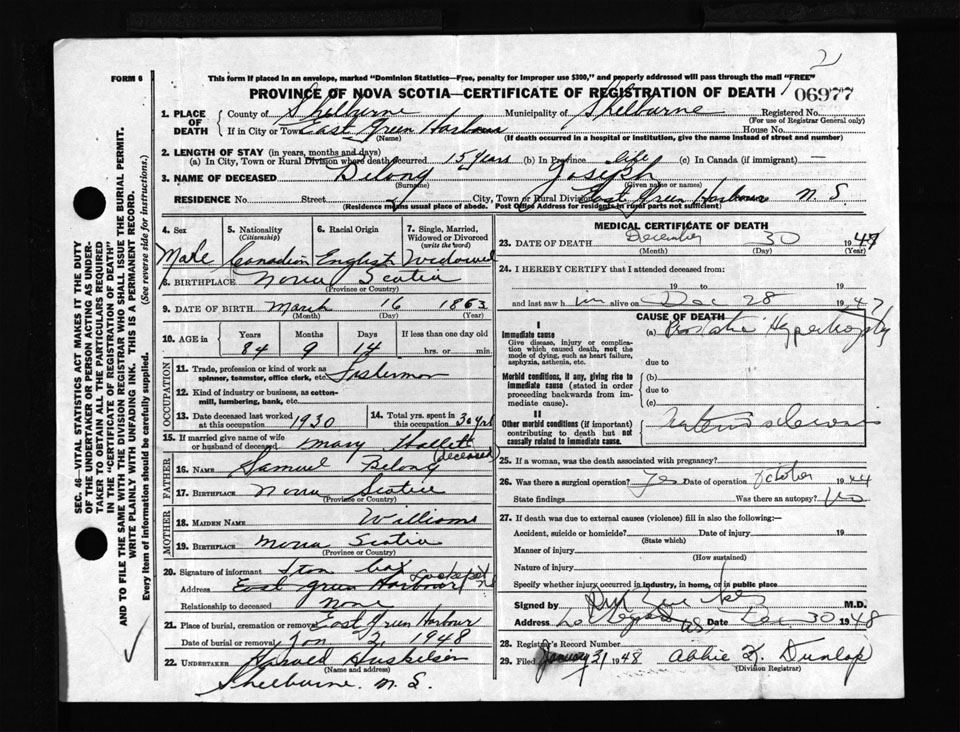 2
FORM 6
This form if placed in an envelope, marked "Dominion Statistics—Free, penalty for improper use $300," and properly addressed will pass through the mail "FREE"
PROVINCE OF NOVA SCOTIA—CERTIFICATE OF REGISTRATION OF DEATH
06977
1. PLACE OF DEATH
County of Shelburne Municipality of Shelburne Registered No.
(For use of Registrar General only)
If in City or Town East Green Harbour House No.
(Name) (If death occurred in a hospital or institution, give the name instead of street and number)
2. LENGTH OF STAY (in years, months and days)
(a) In City, Town or Rural Division where death occurred 15 years (b) In Province life (c) In Canada (if immigrant) —
3. NAME OF DECEASED Delong Joseph
(Surname) (Given name or names)
RESIDENCE No. Street City, Town or Rural Division East Green Harbour N. S.
(Residence means usual place of abode. Post Office Address for residents in rural parts not sufficient)
4. Sex Male
5. Nationality (Citizenship) Canadian
6. Racial Origin English
7. Single, Married, Widowed or Divorced (write the word) Widowed
8. BIRTHPLACE Nova Scotia
(Province or Country)
9. DATE OF BIRTH March 16 1863
(Month) (Day) (Year)
10. AGE in Years Months Days If less than one day old
84 9 14 hrs. or min.
OCCUPATION
11. Trade, profession or kind of work as spinner, teamster, office clerk, etc. Fisherman
12. Kind of industry or business, as cotton-mill, lumbering, bank, etc.
13. Date deceased last worked at this occupation 1930
14. Total yrs. spent in this occupation 30 yrs
15. If married give name of wife or husband of deceased Mary Hallett (deceased)
FATHER
16. NAME Samuel Delong
17. BIRTHPLACE Nova Scotia
(Province or Country)
MOTHER
18. MAIDEN NAME Williams
19. BIRTHPLACE Nova Scotia
(Province or Country)
20. Signature of informant
Address East Green Harbour Lockeport N.S.
Relationship to deceased None
21. Place of burial, cremation or removal East Green Harbour
Date of burial or removal Jan 2, 1948
22. UNDERTAKER Harold Huskilson
(Name and address)
Shelburne. N. S.
MEDICAL CERTIFICATE OF DEATH
23. DATE OF DEATH December 30 1947
(Month) (Day) (Year)
24. I HEREBY CERTIFY that I attended deceased from:
19 to 19
and last saw h im alive on Dec 28 1947
CAUSE OF DEATH
I
Immediate cause
Give disease, injury or complication which caused death, not the mode of dying, such as heart failure, asphyxia, asthenia, etc.
(a) Prostatic Hypertrophy
due to
Morbid conditions, if any, giving rise to immediate cause (stated in order proceeding backwards from immediate cause).
(b)
due to
(c)
II
Other morbid conditions (if important) contributing to death but not causally related to immediate cause.
25. If a woman, was the death associated with pregnancy?
26. Was there a surgical operation? Yes Date of operation October 1944
State findings Was there an autopsy? No
27. If death was due to external causes (violence) fill in also the following:—
Accident, suicide or homicide? Date of injury 19
(State which)
Manner of injury
(How sustained)
Nature of injury
Specify whether injury occurred in industry, in home, or in public place
Signed by M.D.
Address NS. Date Dec. 30 1948
28. Registrar's Record Number
29. Filed January 31 1948 Abbie K. Dunlop
(Division Registrar)
SEC. 46—VITAL STATISTICS ACT MAKES IT THE DUTY
OF THE UNDERTAKER OR PERSON ACTING AS UNDERTAKER TO OBTAIN ALL THE PARTICULARS REQUIRED
IN THE "CERTIFICATE OF REGISTRATION OF DEATH"
AND TO FILE THE SAME WITH THE DIVISION REGISTRAR WHO SHALL ISSUE THE BURIAL PERMIT.
WRITE PLAINLY WITH UNFADING INK. THIS IS A PERMANENT RECORD.
Every item of information should be carefully supplied. (See reverse side for instructions.)